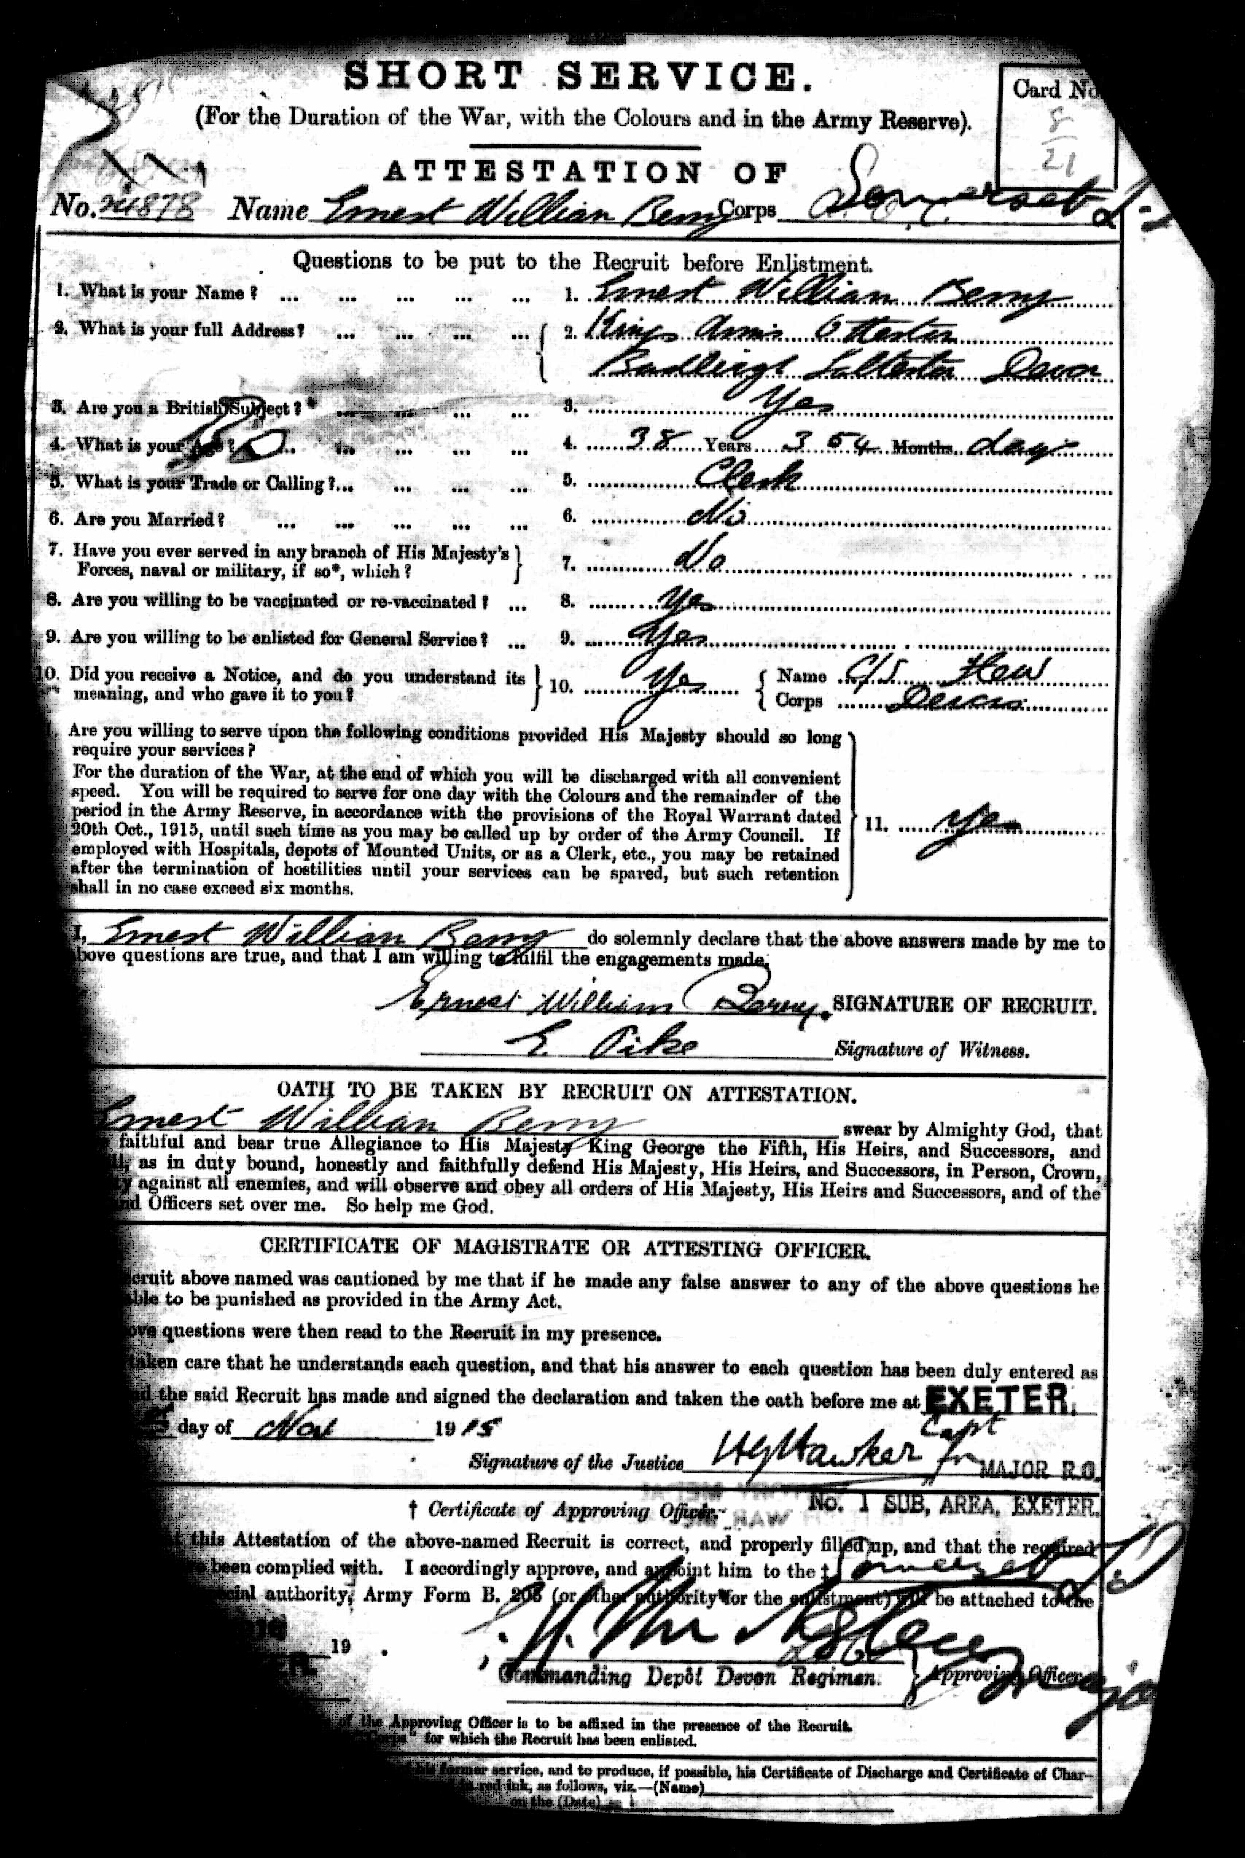 SHORT SERVICE.
Card No.
8
21
(For the Duration of the War, with the Colours and in the Army Reserve).
ATTESTATION OF
No. 24878 Name Ernest William Berry Corps Somerset L.I
Questions to be put to the Recruit before Enlistment.
1. What is your Name? ... ... ... ... ... 1. Ernest William Berry
2. What is your full Address? ... ... ... ... 2. Kings Arms Otterton
Budleigh Salterton Devon
3. Are you a British Subject?* ... ... ... ... 3. Yes
4. What is your Age? ... ... ... ... ... 4. 38 Years 354 Months days
5. What is your Trade or Calling?... ... ... ... 5. Clerk
6. Are you Married? ... ... ... ... ... 6. No
7. Have you ever served in any branch of His Majesty's
Forces, naval or military, if so*, which? 7. No
8. Are you willing to be vaccinated or re-vaccinated? ... 8. Yes
9. Are you willing to be enlisted for General Service? ... 9. Yes
10. Did you receive a Notice, and do you understand its
meaning, and who gave it to you? 10. Yes Name C/S
Corps Devons
Are you willing to serve upon the following conditions provided His Majesty should so long
require your services?
For the duration of the War, at the end of which you will be discharged with all convenient
speed. You will be required to serve for one day with the Colours and the remainder of the
period in the Army Reserve, in accordance with the provisions of the Royal Warrant dated
20th Oct., 1915, until such time as you may be called up by order of the Army Council. If
employed with Hospitals, depots of Mounted Units, or as a Clerk, etc., you may be retained
after the termination of hostilities until your services can be spared, but such retention
shall in no case exceed six months.
11. Yes
I, Ernest William Berry do solemnly declare that the above answers made by me to
above questions are true, and that I am willing to fulfil the engagements made.
Ernest William Berry. SIGNATURE OF RECRUIT.
E. Pike Signature of Witness.
OATH TO BE TAKEN BY RECRUIT ON ATTESTATION.
Ernest William Berry swear by Almighty God, that
faithful and bear true Allegiance to His Majesty King George the Fifth, His Heirs, and Successors, and
as in duty bound, honestly and faithfully defend His Majesty, His Heirs, and Successors, in Person, Crown,
against all enemies, and will observe and obey all orders of His Majesty, His Heirs and Successors, and of the
and Officers set over me. So help me God.
CERTIFICATE OF MAGISTRATE OR ATTESTING OFFICER.
cruit above named was cautioned by me that if he made any false answer to any of the above questions he
ble to be punished as provided in the Army Act.
ove questions were then read to the Recruit in my presence.
taken care that he understands each question, and that his answer to each question has been duly entered as
the said Recruit has made and signed the declaration and taken the oath before me at EXETER.
day of Nov 1915
Capt
Signature of the Justice HGHawker for MAJOR R.O.
No. 1 SUB, AREA, EXETER.
† Certificate of Approving Officer.
this Attestation of the above-named Recruit is correct, and properly filled up, and that the required
been complied with. I accordingly approve, and appoint him to the ‡ Somerset L.I
cial authority, Army Form B. 203 (or other authority for the enlistment) will be attached to the
19 .
Commanding Depôt Devon Regimen. Approving Officer.
Major
of the Approving Officer is to be affixed in the presence of the Recruit.
"Corps" for which the Recruit has been enlisted.
his former service, and to produce, if possible, his Certificate of Discharge and Certificate of Char-
red ink, as follows, viz.—(Name)
on the (Date)